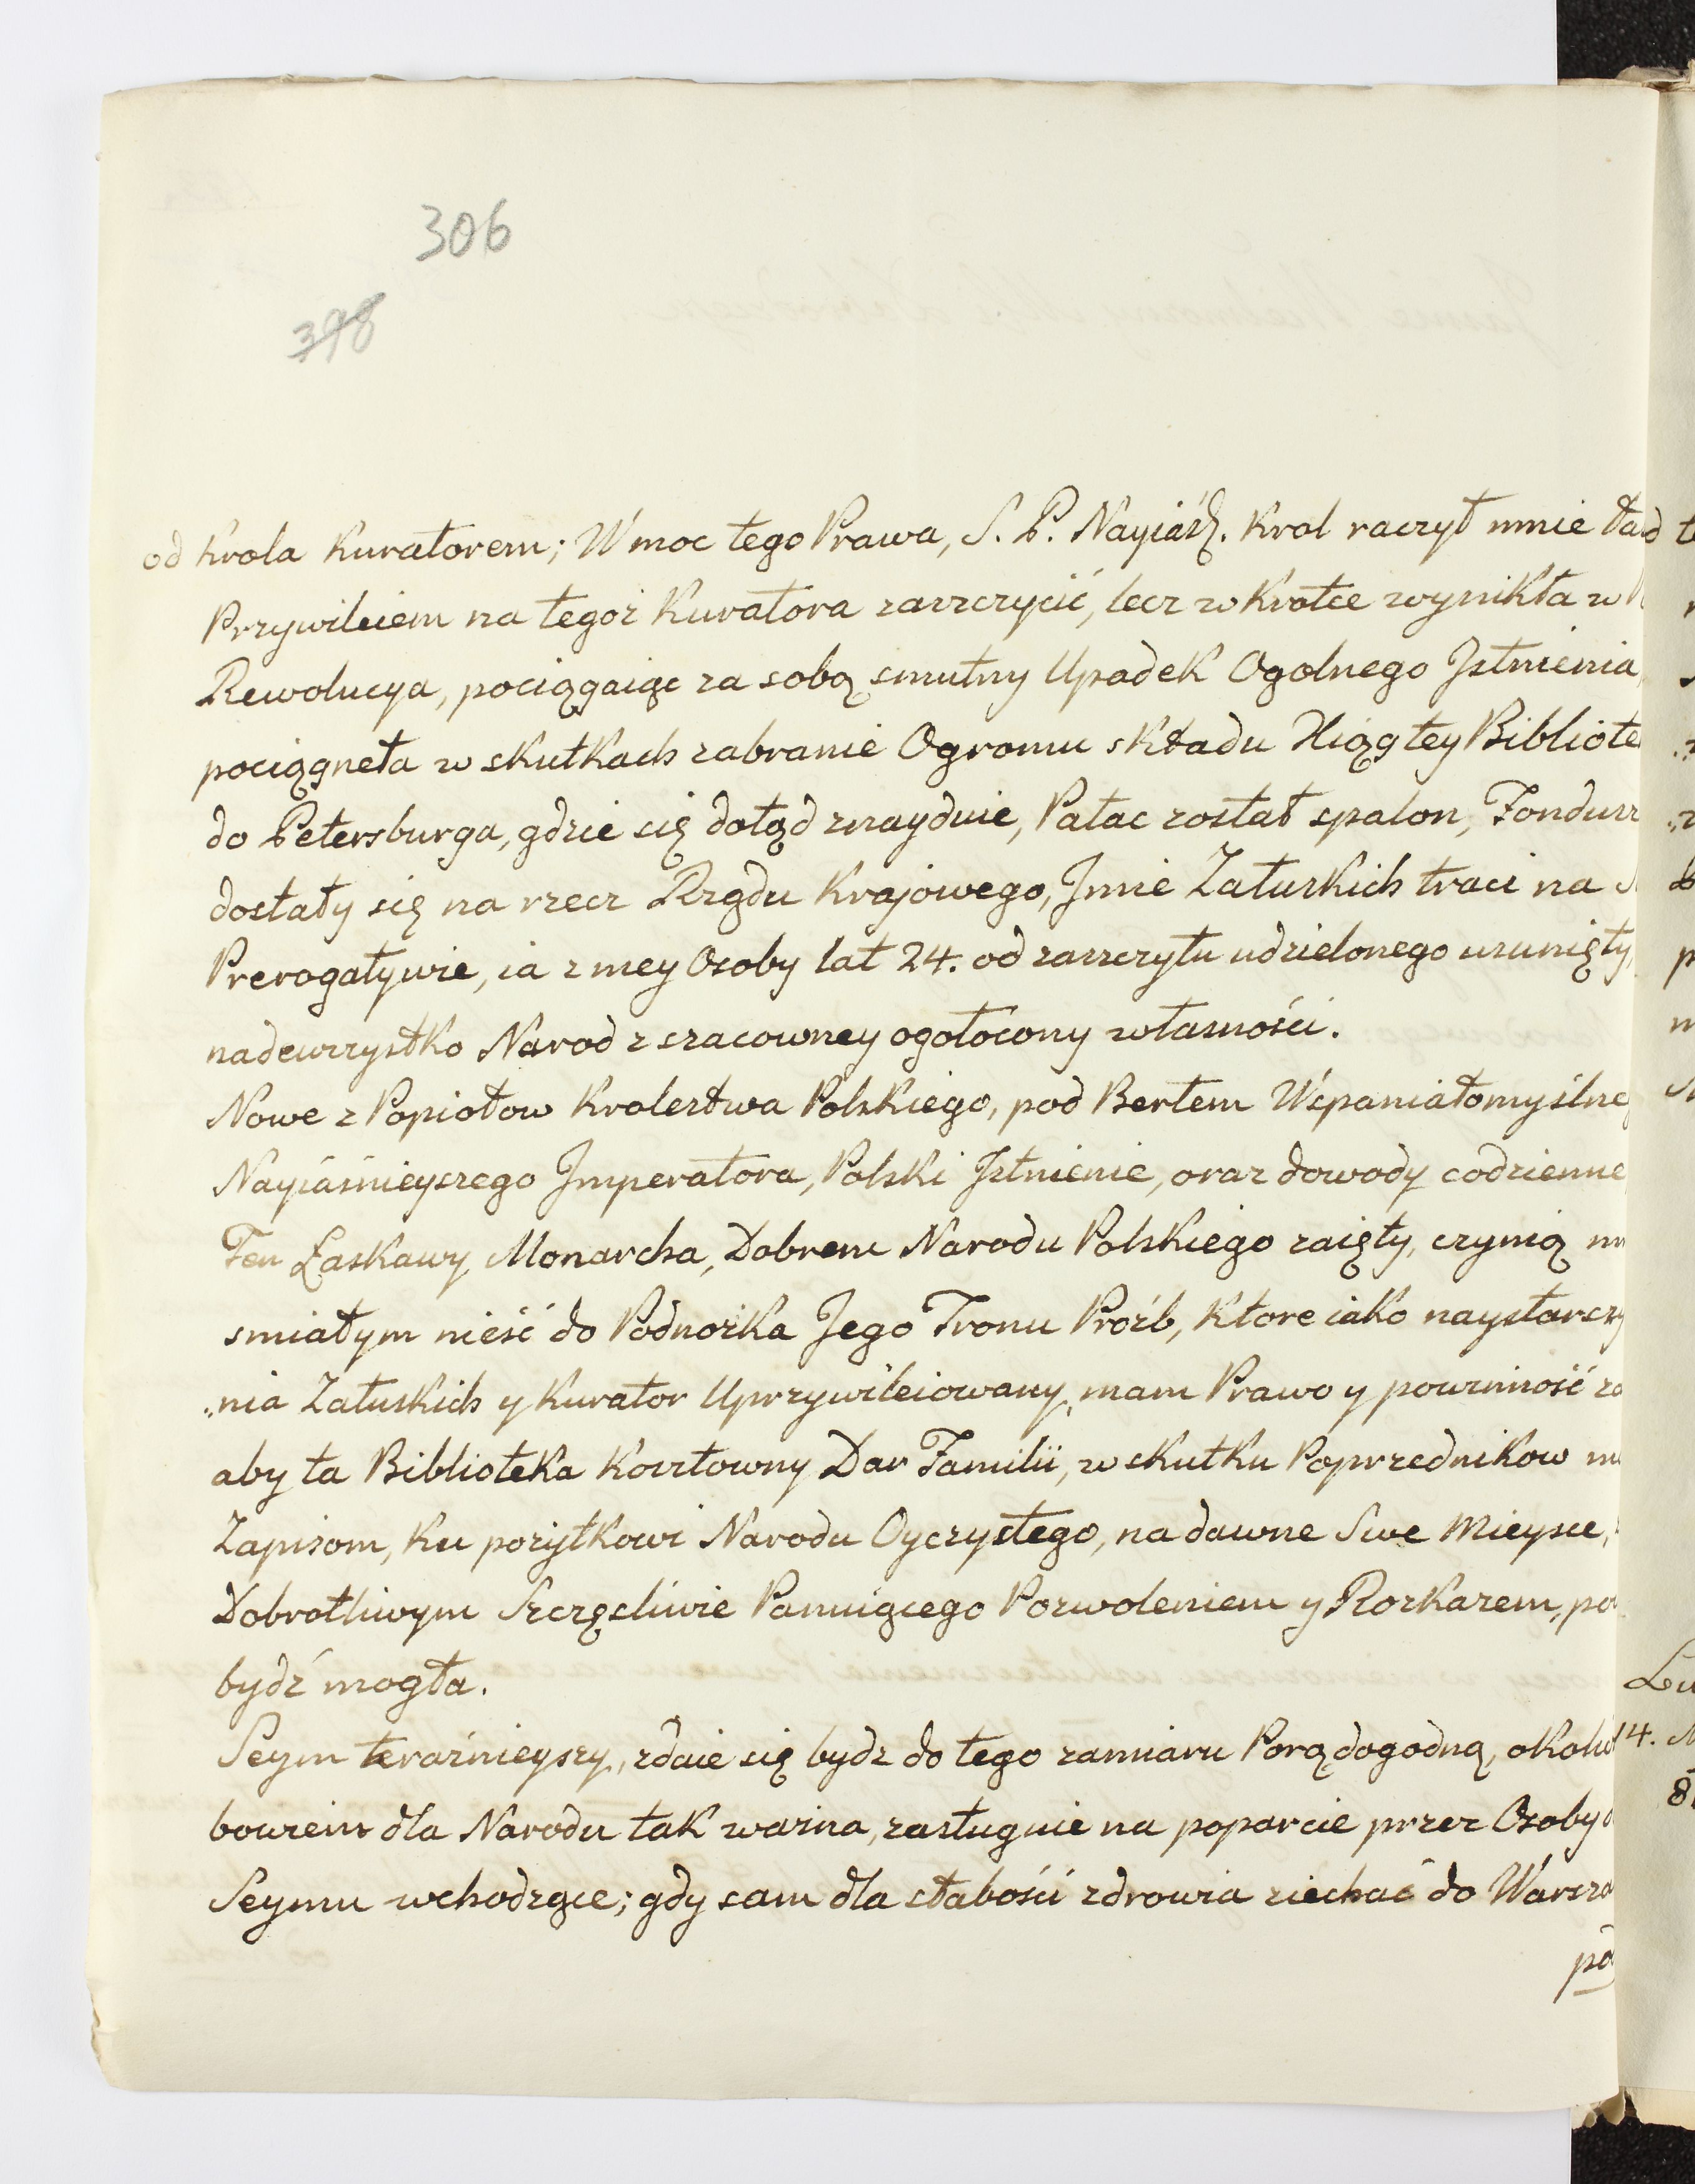 306
398
od Krola Kuratorem; W moc tego Prawa, S. P. Nayiaśś. Krol raczył mnie
Przywileiem na tegoż Kuratora zaszczycić, lecz w Krotce wynikła w
Rewolucya, pociągaiąc za sobą smutny Upadek Ogolnego Jstnienia,
pociągneła w skutkach zabranie Ogromu składu Xiąg tey Bibliote
do Petersburga, gdzie się dotąd znayduie, Pałac został spalon, Fondusz
dostały się na rzecz Rządu Krajowego, Jmie Załuskich traci na
Prerogatywie, ia z mey Osoby lat 24. od zaszczytu udzielonego usunięty,
nadewszystko Narod z szacowney ogołocony własności.
Nowe z Popiołow Krolestwa Polskiego, pod Berłem Wspaniałomyślneg
Nayiaśnieyszego Jmperatora, Polski Jstnienie, oraz dowody codzienne
Ten Łaskawy Monarcha, Dobrem Narodu Polskiego zaięty, czynią
smiałym nieść do Podnożka Jego Tronu Proźb, Ktore iako naystarszy
„nia Załuskich y Kurator Uprzywileiowany, mam Prawo y powinność
aby ta Biblioteka Kosztowny Dar Familii, w skutku Poprzednikow
Zapisom, Ku pożytkowi Narodu Oyczystego, na dawne Swe Mieysce,
Dobrotliwym Szczęsliwie Panuiącego Pozwoleniem y Rozkazem,
bydź mogła.
Seym teraźnieyszy, zdaie się bydz do tego zamiaru Porą dogodną,
bowiem dla Narodu tak ważna, zasługuie na poparcie przez Osoby
Seymu wchodzące; gdy sam dla słabości zdrowia ziechać do Warsza